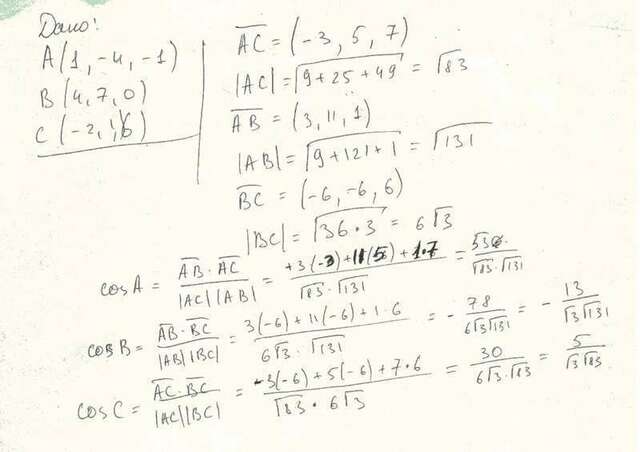 Дано:
A(1, -4, -1)
B(4, 7, 0)
C(-2, 1, 6)
AC = (-3, 5, 7)
|AC| = √9+25+49 = √83
AB = (3, 11, 1)
|AB| = √9+121+1 = √131
BC = (-6, -6, 6)
|BC| = √36·3 = 6√3
cos A = AB·AC / |AC||AB| = +3(-3)+11(5)+1·7 / √83·√131 = 53 / √83·√131
cos B = AB·BC / |AB||BC| = 3(-6)+11(-6)+1·6 / 6√3·√131 = - 78 / 6√3√131 = - 13 / √3√131
cos C = AC·BC / |AC||BC| = -3(-6)+5(-6)+7·6 / √83·6√3 = 30 / 6√3·√83 = 5 / √3√83